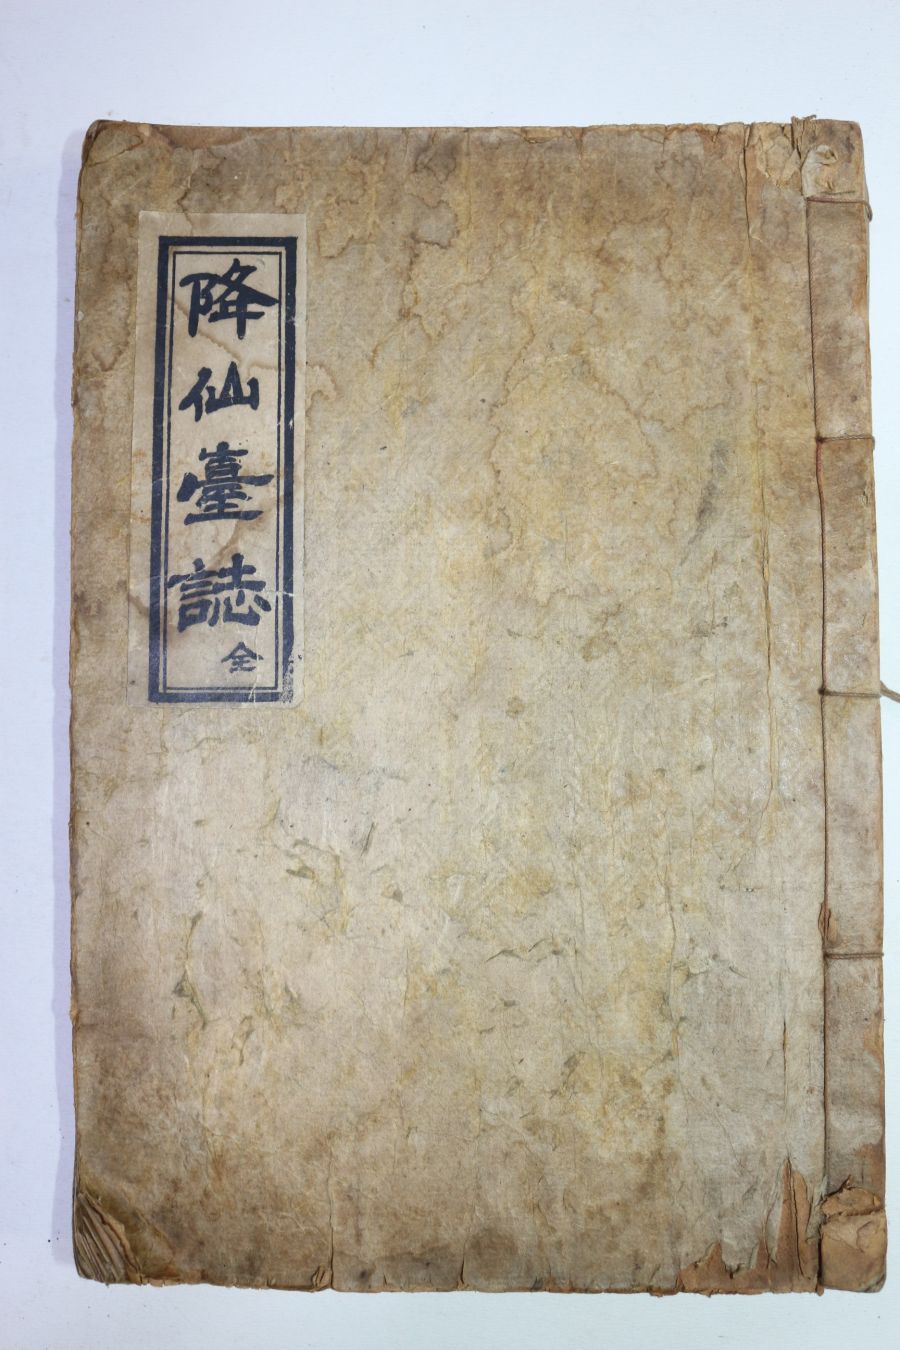 降仙臺誌全